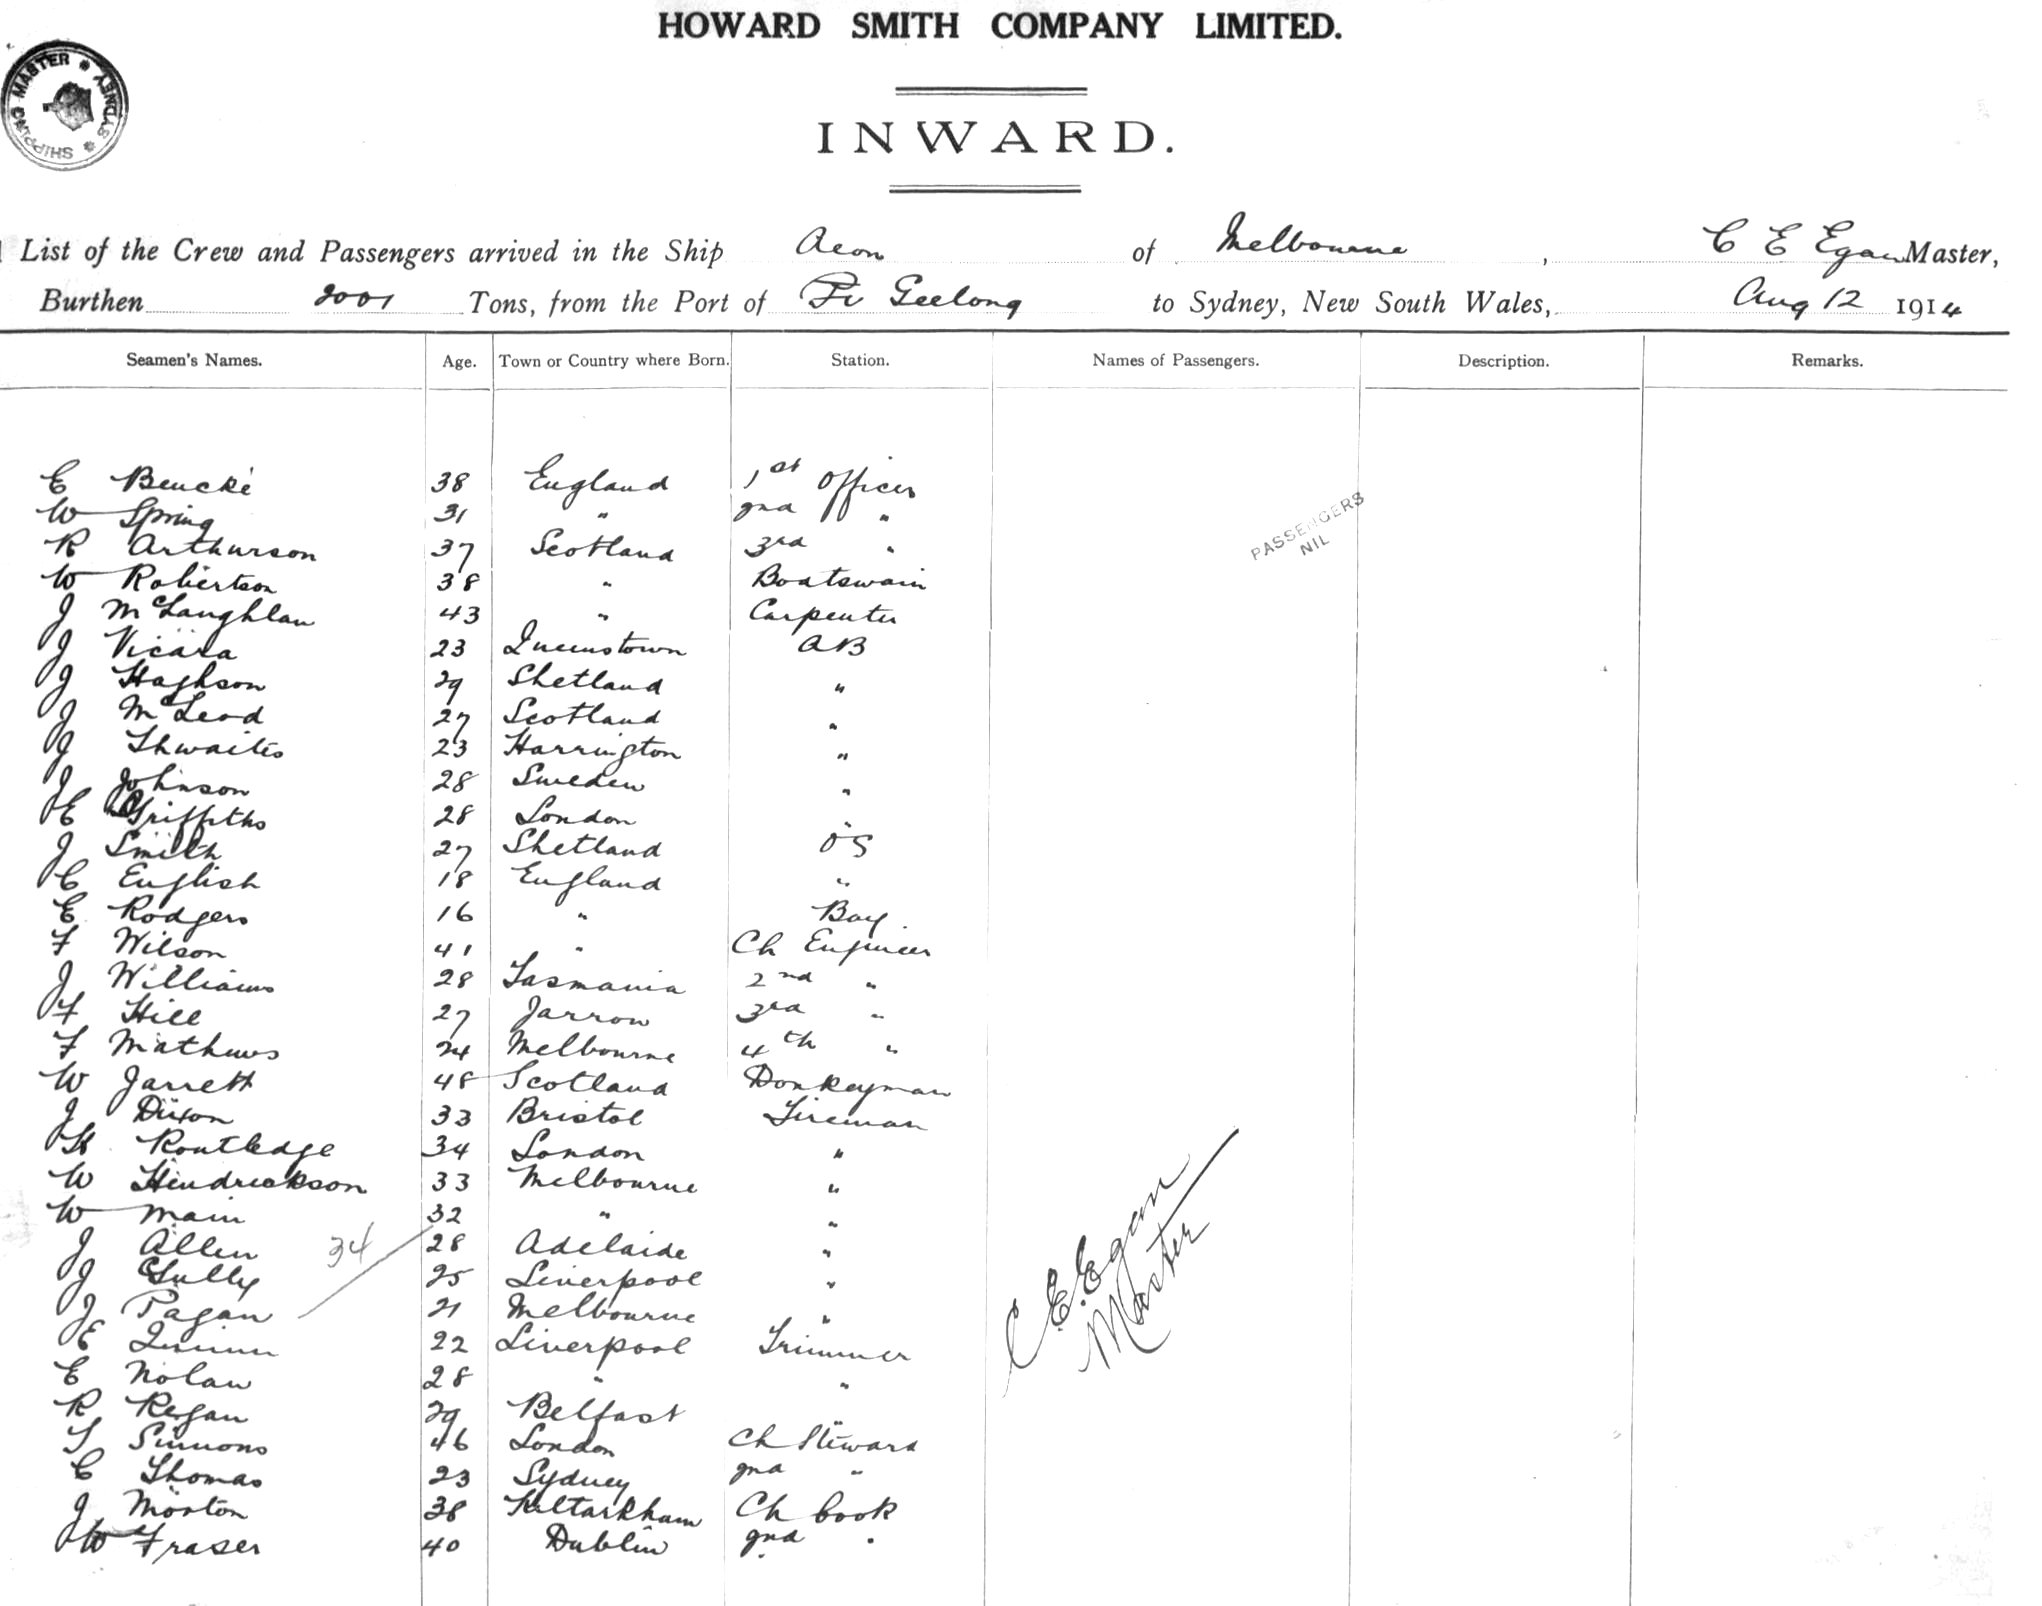 HOWARD SMITH COMPANY LIMITED.
SHIPPING MASTER * SYDNEY *
INWARD.
List of the Crew and Passengers arrived in the Ship Aeon of Melbourne, C E Egan Master,
Burthen 2001 Tons, from the Port of Geelong to Sydney, New South Wales, Aug 12 1914
Seamen's Names. Age. Town or Country where Born. Station. Names of Passengers. Description. Remarks.
E Beucke 38 England 1st Officer
W Spring 31 " 2nd "
PASSENGERS
NIL
R Arthurson 37 Scotland 3rd "
W Robertson 38 " Boatswain
J McLaughlan 43 " Carpenter
J Vicars 23 Queenstown AB
J 29 Shetland "
J McLeod 27 Scotland "
J Thwaites 23 Harrington "
J Johnson 28 Sweden "
E Griffiths 28 London "
J Smith 27 Shetland OS
C English 18 England "
E Rodgers 16 " Boy
F Wilson 41 " Ch Engineer
J Williams 28 Tasmania 2nd "
F Hill 27 Jarrow 3rd "
F Mathews 24 Melbourne 4th "
W Jarrett 48 Scotland Donkeyman
J Dixon 33 Bristol Fireman
H Routledge 34 London "
W Hendrickson 33 Melbourne "
W Main 32 " "
J Allen 34 28 Adelaide "
J 25 Liverpool "
J Pagan 21 Melbourne "
E Quinn 22 Liverpool Trimmer
E Nolan 28 " "
R Regan 29 Belfast "
T Simmons 46 London Ch Steward
C Thomas 23 Sydney 2nd "
J Morton 38 Ch Cook
W Fraser 40 Dublin 2nd "
C. E. Egan
Master